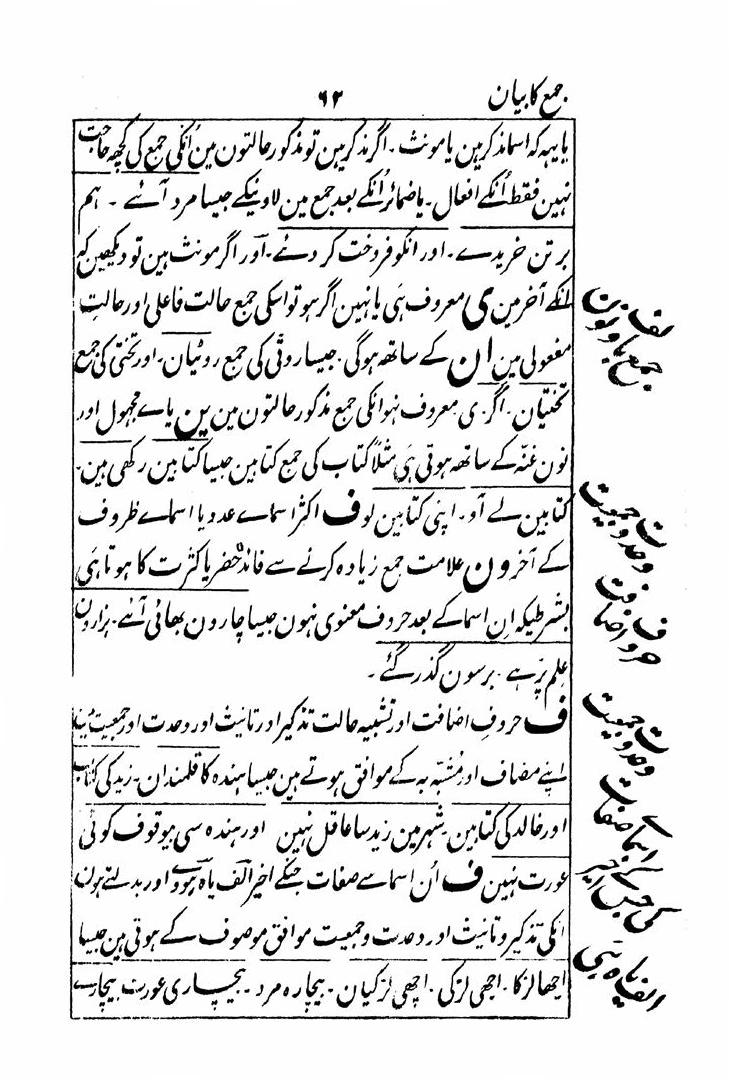 جمع کا بیان ٦٢
یا یہہ کہ اسما مذکر ہین یا مونث ۔ اگر مذکر ہین تو مذکور حالتون مین اُنکی جمع کی کچھ حاجت
نہین فقط اُنکے افعال ۔ یا ضمائر اُنکے بعد جمع مین لاوینگے جیسا مرد آئے ۔ ہم
برتن خریدے ۔ اور انکو فروخت کر دئے ۔ اور اگر مونث ہین تو دیکھین کہ
انکے آخر مین ی معروف ہَی یا نہین اگر ہو تو اسکی جمع حالت فاعلی اور حالتِ
مفعولی مین ان کے ساتھ ہوگی ۔ جیسا روٹی کی جمع روٹیان ۔ اور تختی کی جمع
تختیان ۔ اگر ی معروف نہو انکی جمع مذکور حالتون مین ین یاے مجہول اور
نون غنّہ کے ساتھ ہوتی ہَی مثلاً کتاب کی جمع کتابین جیسا کتابین رکھی ہین ۔
کتابین لے آو ۔ اپنی کتابین لو ف اکثر اسماے عدد یا اسماے ظروف
کے آخر ون علامت جمع زیادہ کرنے سے فائدہ حصر یا کثرت کا ہوتا ہَی
بشرطیکہ اِن اسما کے بعد حروف معنوی نہون جیسا چارون بھائی آئے ۔ ہزارون
علم پڑہے ۔ برسون گذر گئے ۔
ف حروفِ اضافت اور تشبیہ حالت تذکیر اور تانیث اور وحدت اور جمعیت مین
اپنے مضاف اور مُشبّہ بہ کے موافق ہوتے ہین جیسا ہندہ کا قلمندان ۔ زید کی کتاب
اور خالد کی کتابین ۔ شہر مین زید سا عاقل نہین اور ہندہ سی بیوقوف کوئی
عورت نہین ف اُن اسماے صفات جنکے اخیر الف یا ہ ہووے اور بدلتے ہون
انکی تذکیر و تانیث اور وحدت و جمعیت موافق موصوف کے ہوتی ہین جیسا
اچھا لڑکا ۔ اچھی لڑکی ۔ اچھی لڑکیان ۔ بیچارہ مرد ۔ بیچاری عورت بیچارے
وحدت و جمعیت
حروف اضافت
وحدت و جمعیت
اسماے صفات